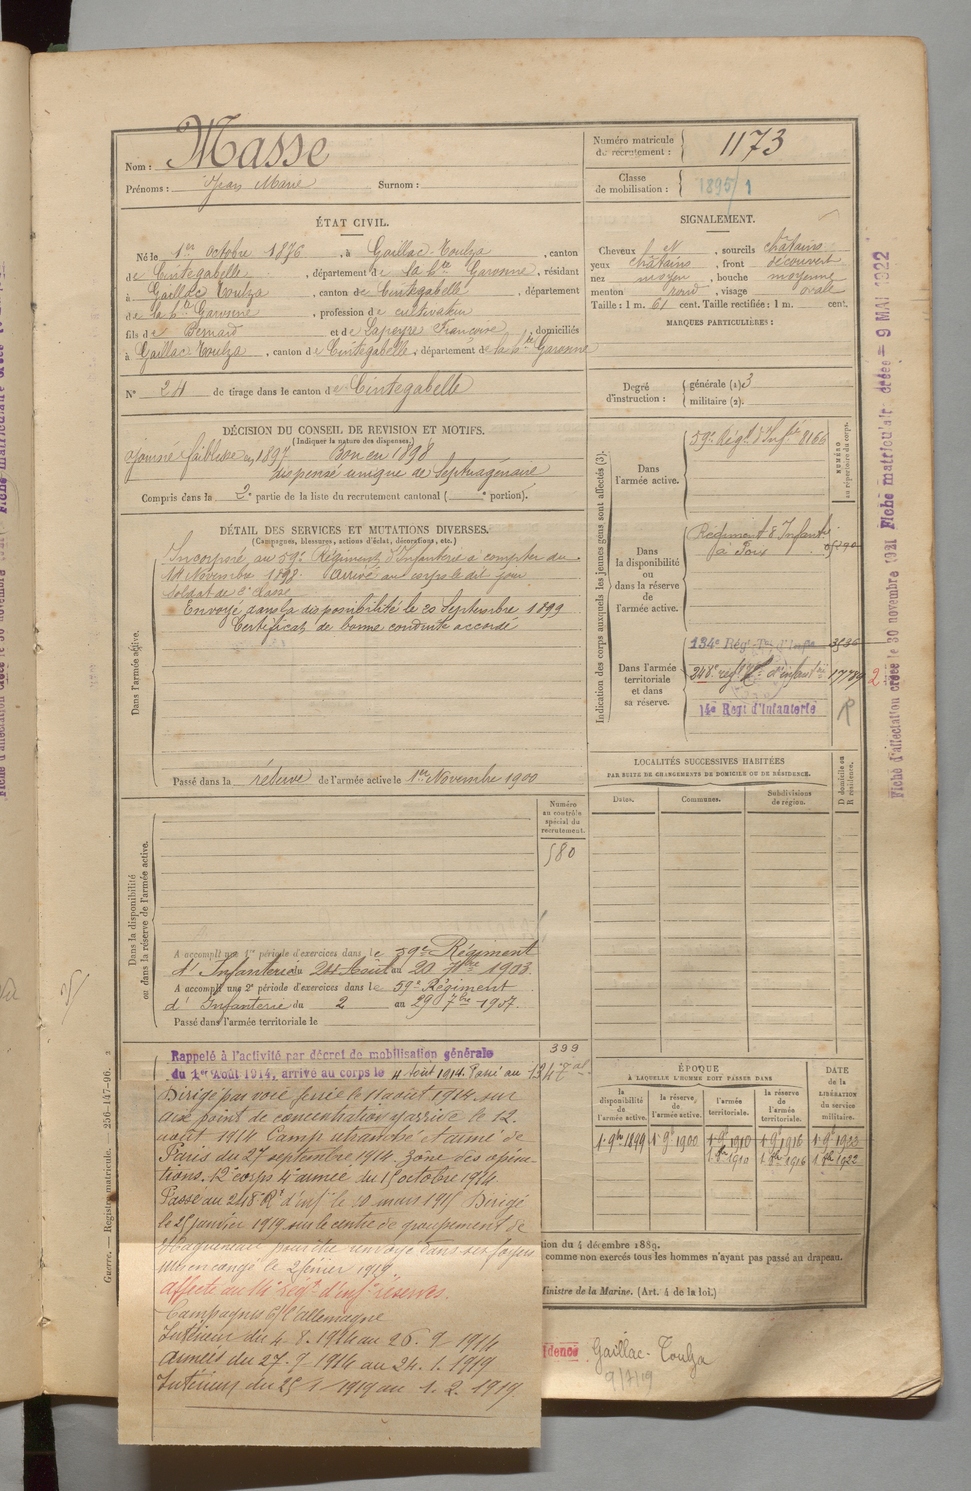 Nom : Masse
Prénoms : Jean Marie Surnom :
Numéro matricule
de recrutement : 1173
Classe
de mobilisation : 1895/1
ÉTAT CIVIL.
Né le 1er octobre 1876, à Gaillac-Toulza, canton
de Cintegabelle, département de la Hte Garonne, résidant
à Gaillac Toulza, canton de Cintegabelle, département
de la Hte Garonne, profession de cultivateur
fils de Bernard et de Lapeyre Françoise, domiciliés
à Gaillac-Toulza, canton de Cintegabelle, département de la Hte Garonne
N° 24 de tirage dans le canton de Cintegabelle
SIGNALEMENT.
Cheveux , sourcils châtains
yeux châtains, front découvert
nez moyen, bouche moyenne
menton rond, visage ovale
Taille : 1 m. 61 cent. Taille rectifiée : 1 m. cent.
MARQUES PARTICULIÈRES :
Degré
d'instruction :
générale (1) 3
militaire (2).
DÉCISION DU CONSEIL DE REVISION ET MOTIFS.
(Indiquer la nature des dispenses.)
Ajourné faiblesse en 1897 Bon en 1898
dispensé unique de septuagénaire
Compris dans la 2e partie de la liste du recrutement cantonal ( e portion).
DÉTAIL DES SERVICES ET MUTATIONS DIVERSES.
(Campagnes, blessures, actions d'éclat, décorations, etc.)
Dans l'armée active.
Incorporé au 59e Régiment d'Infanterie à compter du
14 Novembre 1898. Arrivé au corps le dit jour
soldat de 2e classe
Envoyé dans la disponibilité le 20 Septembre 1899
Certificat de bonne conduite accordé
Passé dans la réserve de l'armée active le 1er Novembre 1900
Indication des corps auxquels les jeunes gens sont affectés (3).
NUMÉRO
au répertoire du corps.
Dans
l'armée active.
59e Régt d'Infie 8166
Dans
la disponibilité
ou
dans la réserve
de
l'armée active.
Régiment d'Infanterie
Dans l'armée
territoriale
et dans
sa réserve.
134e Rég. Ter. d'Infie
248e régt d'infanterie
14e Régt d'Infanterie
R
LOCALITÉS SUCCESSIVES HABITÉES
PAR SUITE DE CHANGEMENTS DE DOMICILE OU DE RÉSIDENCE.
Dates. Communes. Subdivisions
de région.
D domicile ou
R résidence.
Numéro
au contrôle
spécial du
recrutement.
580
Dans la disponibilité
ou dans la réserve de l'armée active.
A accompli une 1re période d'exercices dans le 59e Régiment
d'Infanterie du 24 Août au 20 7bre 1903.
A accompli une 2e période d'exercices dans le 59e Régiment
d'Infanterie du 2 au 29 7bre 1907.
Passé dans l'armée territoriale le
399
Rappelé à l'activité par décret de mobilisation générale
du 1er Août 1914, arrivé au corps le 4 août 1914. Passé au 134e
Dirigé par voie ferrée le 11 août 1914 sur
point de concentration y arrivé le 12
août 1914 Camp retranché et armée de
Paris du 27 septembre 1914. Zone des opéra-
tions. 12e corps 4e armée du 15 octobre 1914
Passé au 248e R d'infie le 10 mars 1915 Dirigé
le 25 janvier 1919 sur le centre de groupement de
pour être renvoyé dans ses foyers
Mis en congé le 2 février 1919
Affecté au 14e Régt d'infie réserves.
Campagnes C/ l'Allemagne
Intérieur du 4-8-1914 au 26-9-1914
Armées du 27-9-1914 au 24-1-1919
Intérieur du 25-1-1919 au 1-2-1919
ÉPOQUE
À LAQUELLE L'HOMME DOIT PASSER DANS
DATE
de la
LIBÉRATION
du service
militaire.
la
disponibilité
de
l'armée active.
la réserve
de
l'armée active.
l'armée
territoriale.
la réserve
de
l'armée
territoriale.
1er 9bre 1899 1er 9bre 1900 1er 9bre 1910 1er 9bre 1916
1er 8bre 1910 1er 8bre 1916 1er 8bre 1922
tion du 4 décembre 1889.
comme non exercés tous les hommes n'ayant pas passé au drapeau.
Ministre de la Marine. (Art. 4 de la loi.)
idence Gaillac-Toulza
9/7/19
Guerre. — Registre matricule. — 256-147-96.
Fiche d'affectation créée le 30 novembre 1921 Fiche matriculaire créée = 9 MAI 1922